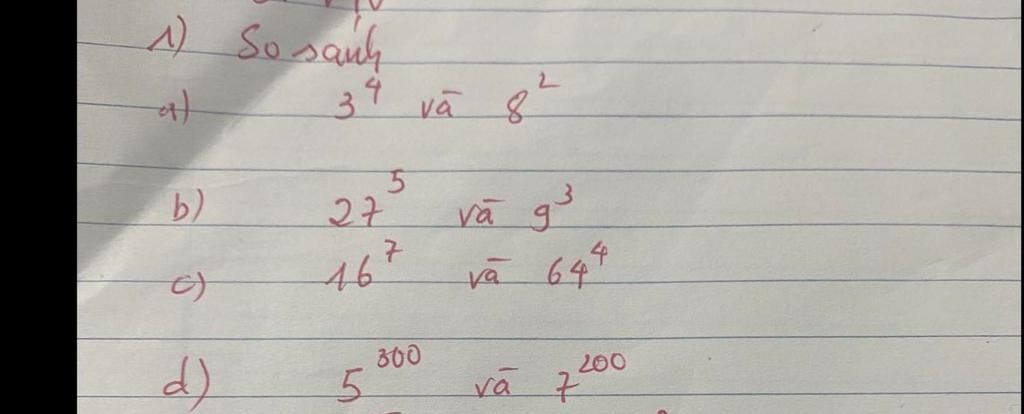 1) So sánh
a) 3⁴ và 8²
b) 27⁵ và 9³
c) 16⁷ và 64⁴
d) 5³⁰⁰ và 7²⁰⁰